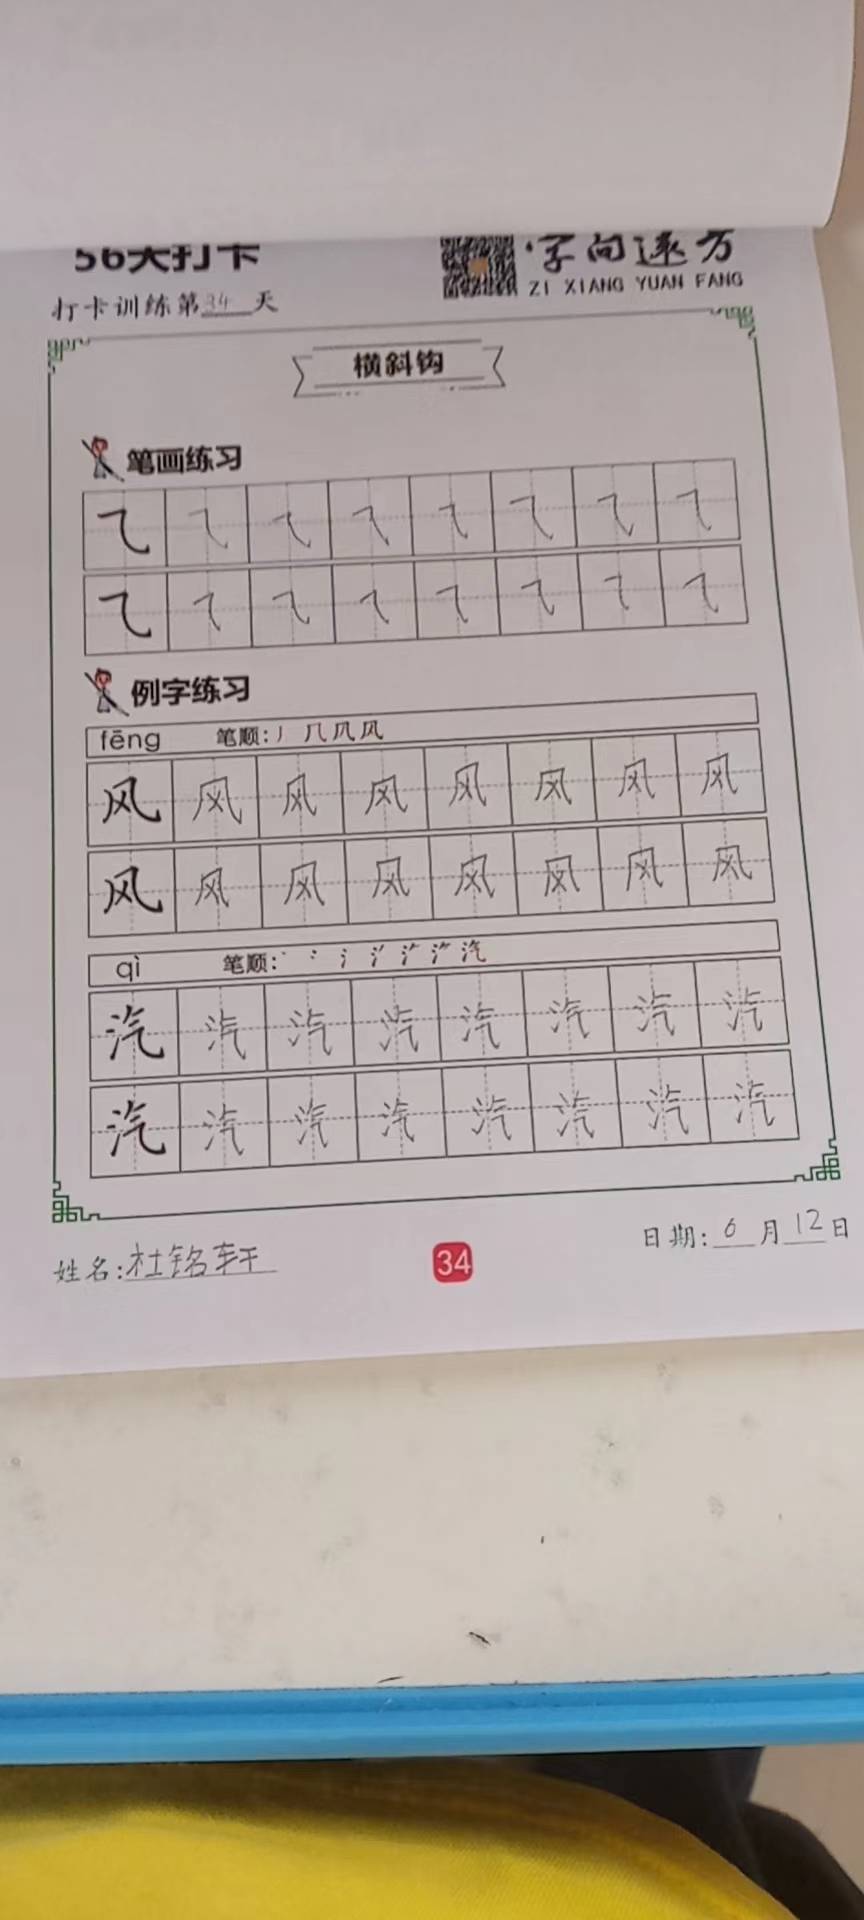 56天打卡
字向远方
ZI XIANG YUAN FANG
打卡训练第34天
横斜钩
笔画练习
㇈ ㇈ ㇈ ㇈ ㇈ ㇈ ㇈ ㇈
㇈ ㇈ ㇈ ㇈ ㇈ ㇈ ㇈ ㇈
例字练习
fēng 笔顺:丿 几 凤 风
风 风 风 风 风 风 风 风
风 风 风 风 风 风 风 风
qì 笔顺: 汽
汽 汽 汽 汽 汽 汽 汽 汽
汽 汽 汽 汽 汽 汽 汽 汽
姓名:杜铭轩
34
日期:6月12日